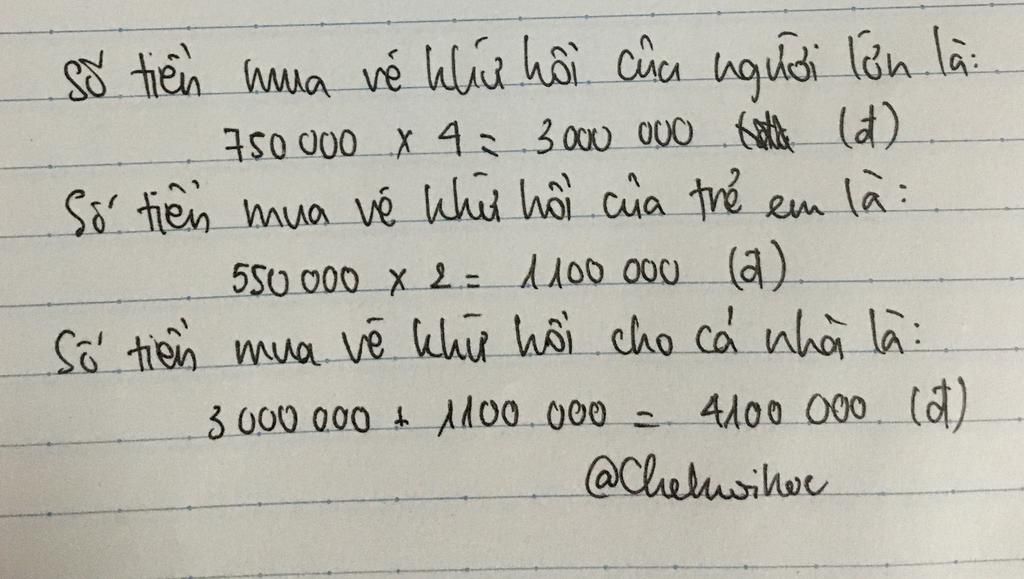 Số tiền mua vé khứ hồi của người lớn là:
750 000 x 4 = 3 000 000 (đ)
Số tiền mua vé khứ hồi của trẻ em là:
550 000 x 2 = 1100 000 (đ)
Số tiền mua vé khứ hồi cho cả nhà là:
3 000 000 + 1100 000 = 4100 000 (đ)